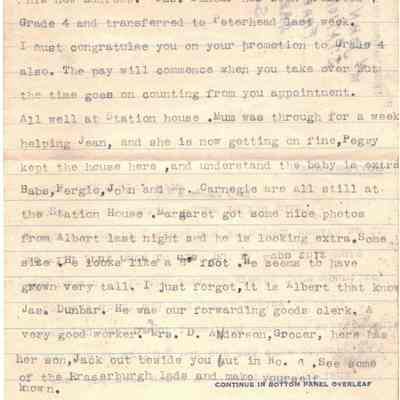 Grade 4 and transferred to Peterhead last week.
I must congratulae you on your promotion to Grade 4
also. The pay will commence when you take over but
the time goes on counting from you appointment.
All well at Station house .Mum was through for a week
helping Jean, and she is now getting on fine,Peggy
kept the house here ,and understand the baby is extra
Babs,Fergie,John and Mr. Carnegie are all still at
the Station House .Margaret got some nice photos
from Albert last night and he is looking extra.Some
size .He looks like a foot .He seems to have
grown very tall. I just forgot,it is Albert that know
Jas. Dunbar. He was our forwarding goods clerk. A
very good worker. Mrs. D. Anderson,Grocer, here has
her son,Jack out beside you but in No. 4 .See some
of the Fraserburgh lads and make yourself
known.
CONTINUE IN BOTTOM PANEL OVERLEAF